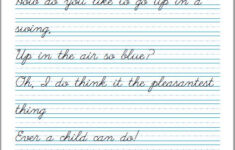 How do you like to go up in a
swing,
Up in the air so blue?
Oh, I do think it the pleasantest
thing
Ever a child can do!